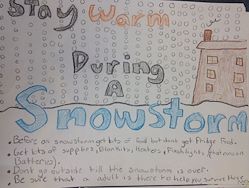 Stay Warm
During
A
Snowstorm
• Before an snowstorm get lots of food but don't get Fridge Foods.
Get lots of supplies, Blankets, Heaters, Flashlights, (Flashlight
Batteries).
• Don't go outside till the snowstorm is over.
• Be sure that a adult is there to help you survive these